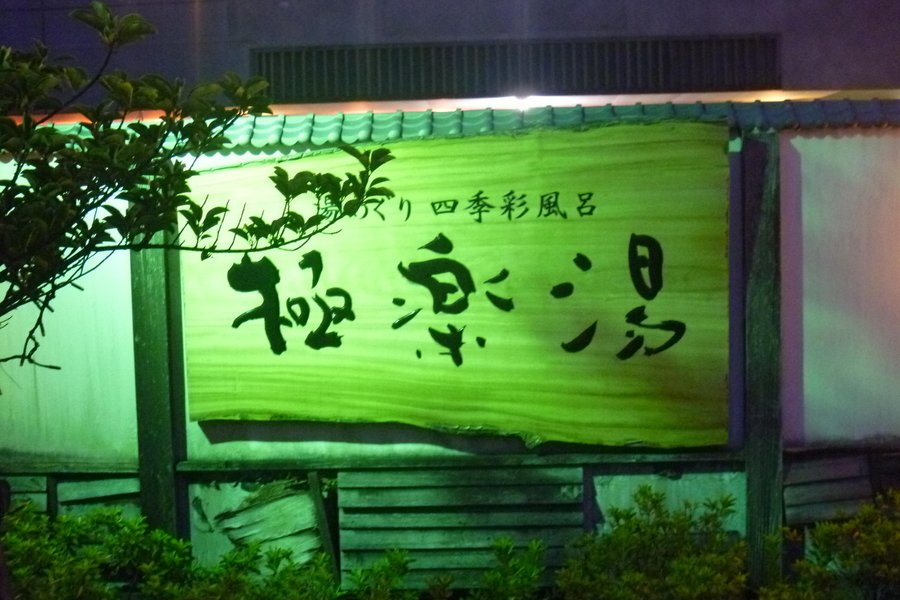 湯めぐり 四季彩風呂
極楽湯